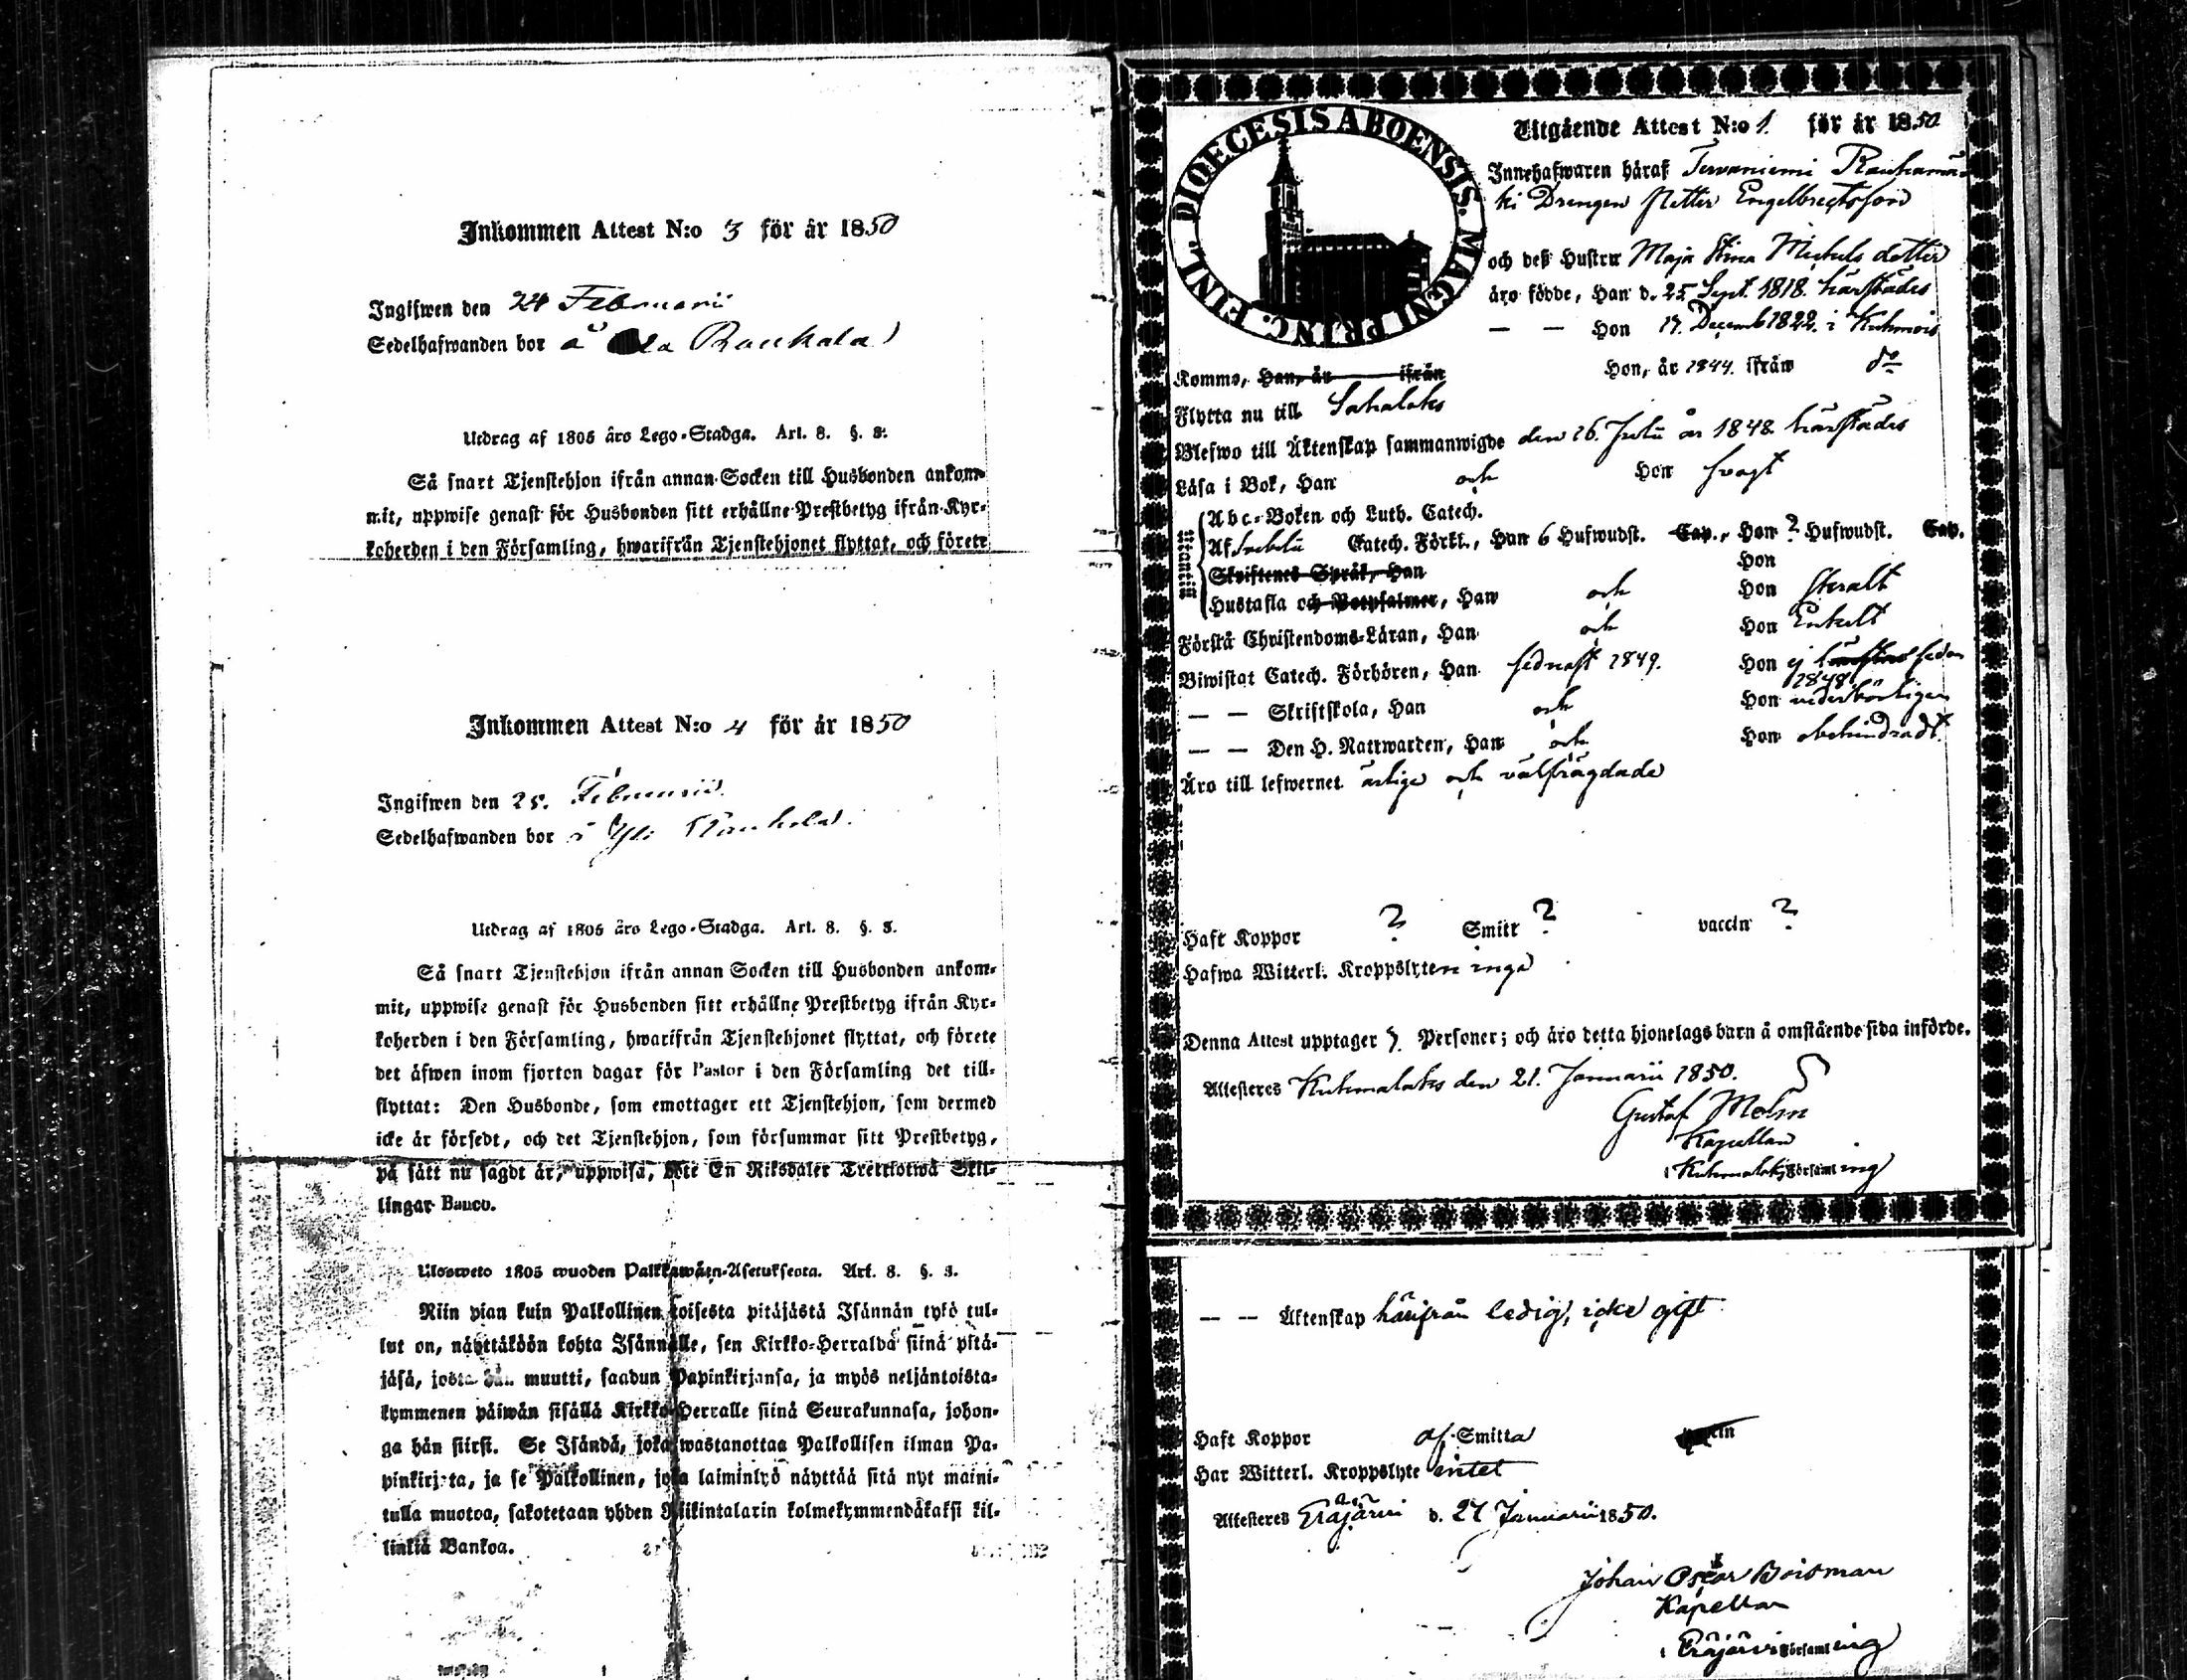 Inkommen Attest N:o 3 för år 1850
Ingifwen den 24 Februarii
Sedelhafwanden bor å Ala Rauhala
Utdrag af 1805 års Lego-Stadga. Art. 8. §. 3.
Så snart Tjenstehjon ifrån annan Socken till Husbonden ankom-
mit, uppwise genast för Husbonden sitt erhållne Prestbetyg ifrån Kyr-
koherden i den Församling, hwarifrån Tjenstehjonet flyttat, och förete
Inkommen Attest N:o 4 för år 1850
Ingifwen den 25. Februarii
Sedelhafwanden bor å Yli Rauhala
Utdrag af 1805 års Lego-Stadga. Art. 8. §. 3.
Så snart Tjenstehjon ifrån annan Socken till Husbonden ankom-
mit, uppwise genast för Husbonden sitt erhållne Prestbetyg ifrån Kyr-
koherden i den Församling, hwarifrån Tjenstehjonet flyttat, och förete
det äfwen inom fjorton dagar för Pastor i den Församling det till-
flyttat: Den Husbonde, som emottager ett Tjenstehjon, som dermed
icke är försedt, och det Tjenstehjon, som försummar sitt Prestbetyg,
på sätt nu sagdt är, uppwisa, böte En Riksdaler Trettiotwå Skil-
lingar Banco.
Ulosweto 1805 wuoden Palkkawäen-Asetuksesta. Art. 8. §. 3.
Niin pian kuin Palkollinen toisesta pitäjästä Isännän tykö tul-
lut on, näyttäköön kohta Isännälle, sen Kirkko-Herralda siinä pitä-
jäsä, josta hän muutti, saadun Papinkirjansa, ja myös neljäntoista-
kymmenen päiwän sisällä Kirkko-Herralle siinä Seurakunnasa, johon-
ga hän siirsi. Se Isändä, joka wastanottaa Palkollisen ilman Pa-
pinkirjata, ja se Palkollinen, joka laiminlyö näyttää sitä nyt maini-
tulla muotoa, sakotetaan yhden Riikintalarin kolmekymmendäkaksi kil-
linkiä Bankoa.
DIOECESIS ABOENSIS. MAGNI PRINC. FINL.
Utgående Attest N:o 1. för år 1850
Innehafwaren häraf Tervaniemi Rauhamä-
ki Drengen Petter Engelbrechtsson
och deß Hustru Maja Stina Michels dotter
äro födde, Han d. 25 Sept. 1818. härstädes
— — Hon 17. Decemb 1822. i Kuhmois
Kommo, Han, år ifrån Hon, år 1844. ifrån do
Flytta nu till Sahalaks
Blefwo till Äktenskap sammanwigde den 26. Julii år 1848. härstädes
Läsa i Bok, Han och Hon svagt
Utantill
Abc-Boken och Luth. Catech.
Af Svebelii Catech. Förkl., Han 6 Hufwudst. Cap., Hon ? Hufwudst. Cap.
Skriftenes Språk, Han Hon
Hustafla och Botpsalmer, Han och Hon
Förstå Christendoms-Läran, Han och Hon Enkelt
Biwistat Catech. Förhören, Han sednast 1849. Hon ej sedan
1848.
— — Skriftskola, Han och Hon vederbörligen
— — Den H. Nattwarden, Han och Hon obehindradt.
Äro till lefwernet ärlige och välfrägdade
Haft Koppor ? Smitt ? vaccin ?
Hafwa Witterl. Kroppslyten inga
Denna Attest upptager Personer; och äro detta hjonelags barn å omstående sida införde.
Attesteres Kuhmalaks den 21. Januarii 1850.
Gustaf Molin
Kapellan
i Kuhmalaks Församling
— — Äktenskap härifrån ledig, icke gift
Haft Koppor af Smitta vaccin
Har Witterl. Kroppslyte intet
Attesteres Eräjärvi d. 27 Januarii 1850.
Johan Oscar Boisman
Kapellan
i Eräjärvi Församling